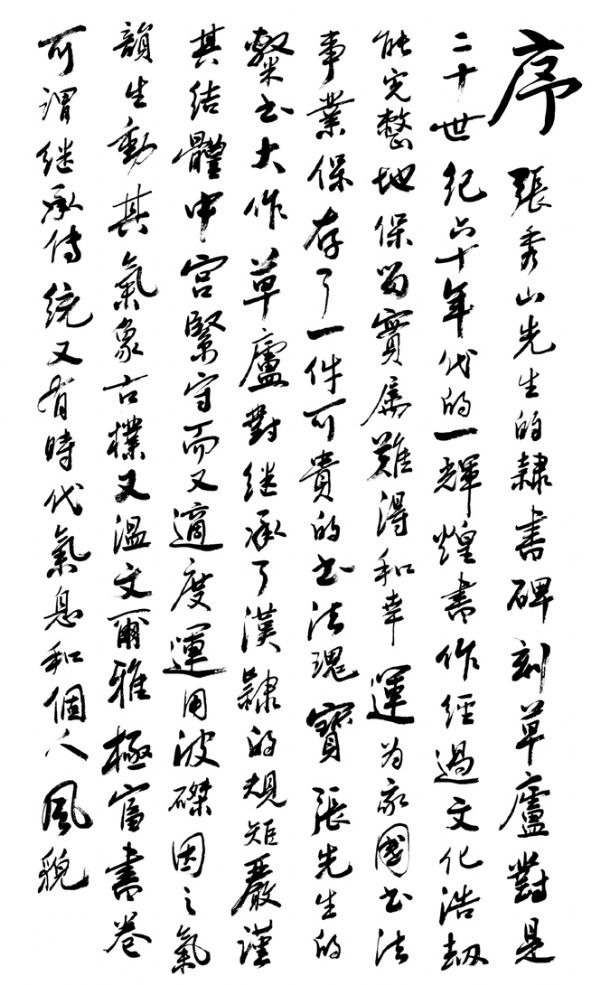 序 張秀山先生的隸書碑刻草廬對是
二十世紀六十年代的一輝煌書作經過文化浩劫
能完整地保留實屬難得和幸運為家國書法
事業保存了一件可貴的書法瑰寶張先生的
榜書大作草廬對继承了漢隸的規矩嚴謹
其结體中宮緊守而又適度運用波磔因之氣
韻生動其氣象古樸又溫文爾雅極富書卷
可謂继承传统又有時代氣息和個人風貌